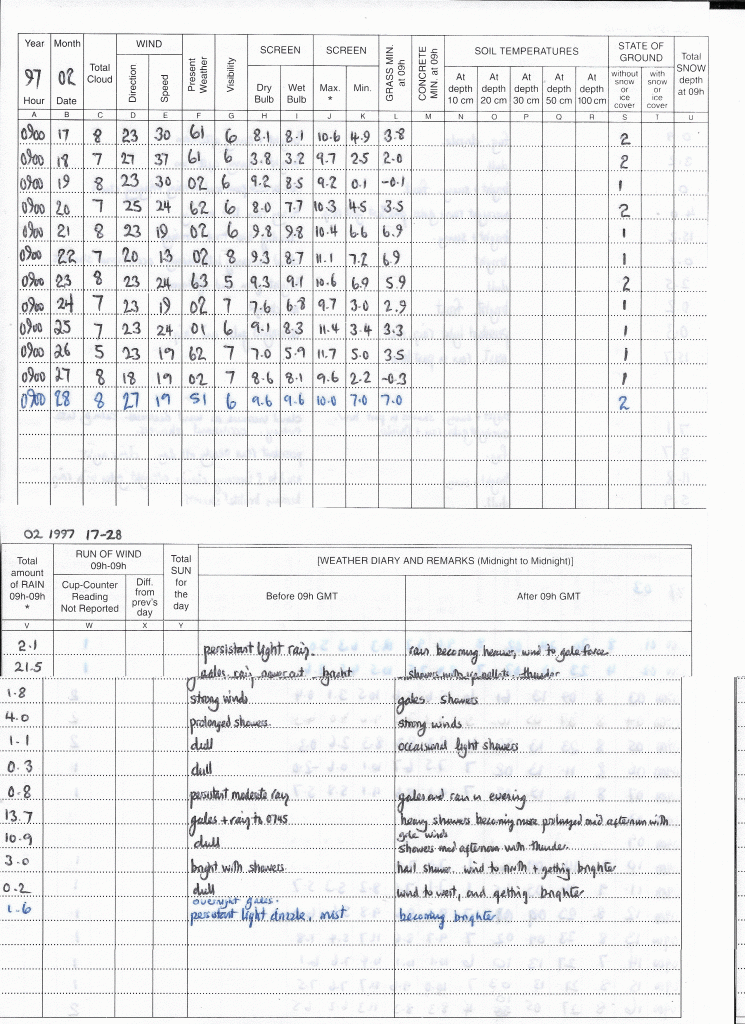 Year Month Total Cloud WIND Present Weather Visibility SCREEN SCREEN GRASS MIN. at 09h CONCRETE MIN. at 09h SOIL TEMPERATURES STATE OF GROUND Total SNOW depth at 09h
97 02 Direction Speed Dry Bulb Wet Bulb Max. * Min. At depth 10 cm At depth 20 cm At depth 30 cm At depth 50 cm At depth 100 cm without snow or ice cover with snow or ice cover
Hour Date
A B C D E F G H I J K L M N O P Q R S T U
0900 17 8 23 30 61 6 8.1 8.1 10.6 4.9 3.8 2
0900 18 7 27 37 61 6 3.8 3.2 9.7 2.5 2.0 2
0900 19 8 23 30 02 6 9.2 8.5 9.2 0.1 -0.1 1
0900 20 7 25 24 62 6 8.0 7.7 10.3 4.5 3.5 2
0900 21 8 23 19 02 6 9.8 9.8 10.4 6.6 6.9 1
0900 22 7 20 13 02 8 9.3 8.7 11.1 7.2 6.9 1
0900 23 8 23 24 63 5 9.3 9.1 10.6 6.9 5.9 2
0900 24 7 23 19 02 7 7.6 6.8 9.7 3.0 2.9 1
0900 25 7 23 24 01 6 9.1 8.3 11.4 3.4 3.3 1
0900 26 5 23 19 62 7 7.0 5.9 11.7 5.0 3.5 1
0900 27 8 18 19 02 7 8.6 8.1 9.6 2.2 -0.3 1
0900 28 8 27 19 51 6 9.6 9.6 10.0 7.0 7.0 2
02 1997 17-28
Total amount of RAIN 09h-09h * RUN OF WIND 09h-09h Total SUN for the day [WEATHER DIARY AND REMARKS (Midnight to Midnight)]
Cup-Counter Reading Not Reported Diff. from prev's day Before 09h GMT After 09h GMT
V W X Y
2.1 persistant light rain. rain becoming heavier, wind to gale force
21.5 gales, rain, power cut bright showers with ice pellets, thunder
1.8 strong winds gales showers
4.0 prolonged showers strong winds
1.1 dull occasional light showers
0.3 dull
0.8 persistent moderate rain gales and rain in evening
13.7 gales + rain to 0745 heavy showers becoming more prolonged mid afternoon with
gale winds
10.9 dull showers mid afternoon with thunder.
3.0 bright with showers hail shower, wind to north + getting brighter
0.2 dull wind to west, and getting brighter
overnight gales.
1.6 persistant light drizzle, mist becoming brighter